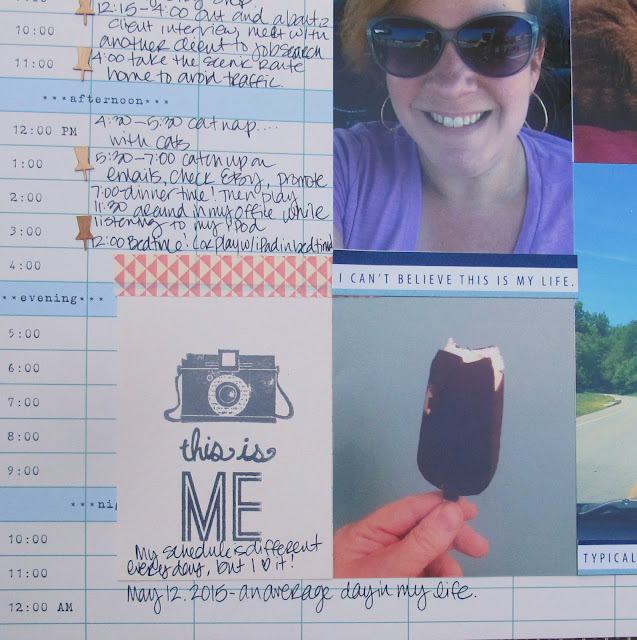 12:15-4:00 out and about 2
client interview, meet with
another client to job search
4:00 take the scenic route
home to avoid traffic.
4:30-5:30 cat nap....
with cats
5:30-7:00 catch up on
emails, check Etsy, promote
7:00-dinner time! Then play
11:30 around in my office while
listening to my iPod
12:00 Bedtime! Or play w/ iPad in bed time
10:00
11:00
***afternoon***
12:00 PM
1:00
2:00
3:00
4:00
**evening***
5:00
6:00
7:00
8:00
9:00
***ni
10:00
11:00
12:00 AM
I CAN'T BELIEVE THIS IS MY LIFE.
this is
ME
My schedule is different
every day, but I ♡ it!
May 12. 2015- an average day in my life.
TYPICAL